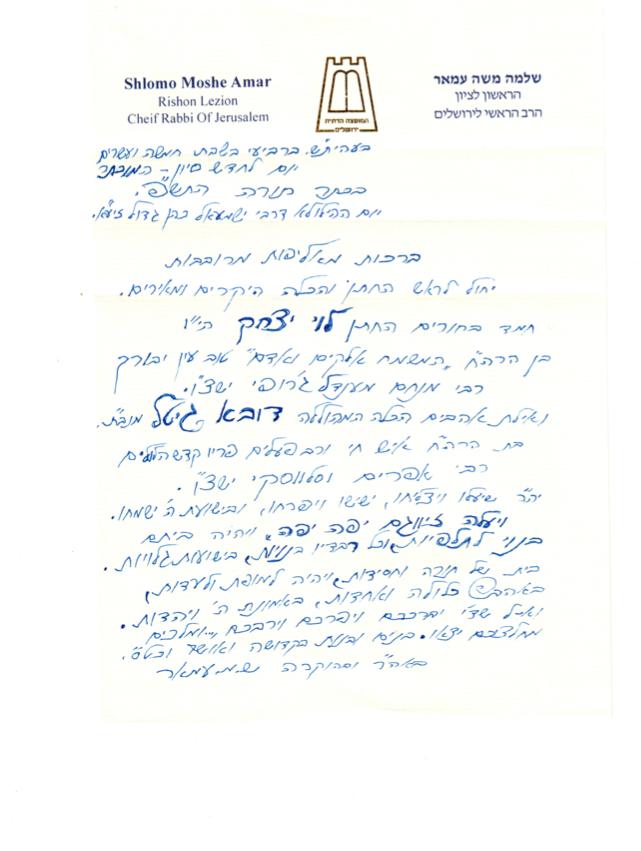 Shlomo Moshe Amar
Rishon Lezion
Cheif Rabbi Of Jerusalem
המועצה הדתית
ירושלים
שלמה משה עמאר
הראשון לציון
הרב הראשי לירושלים
בעהית"ש. ברביעי בשבת חמשה ועשרים
יום לחדש סיון - המוכתר
בכתר תורה התש"פ.
יום ההילולא דרבי ישמעאל כהן גדול זיע"א.
ברכות מאליפות מרובבות
יחול לראש החתן והכלה היקרים ומאירים.
חמד בחורים החתן לוי יצחק הי"ו
בן הרה"ח "המשמח אלקים ואדם" טוב עין יבורך
רבי מנחם מענדל ג'רופי ישצ"ו.
ואילת אהבים הכלה המהוללה דובא גיטל מנב"ת.
בת הרה"ח איש חי ורב פעלים פריו קדש הלולים
רבי אפרים וסלווסקי ישצ"ו.
יה"ר שיעלו ויצליחו, ישישו ויפרחו, ובישועת ה' ישמחו.
ויעלה זיווגם יפה יפה, ויהיה ביתם
בנוי לתלפיות, וכל רבדיו בנויות, בישועות גלויות.
בית של תורה וחסידות, ויהיה למופת ולעדות,
באהבה כלולה ואחדות, באמונת ה' ויהדות.
וא-ל שד"י יברככם ויפרכם וירבכם,... ומלכים
מחלציכם יצאו. בנים ובנות בקדושה ואושר וכט"ס.
באה"ר ובהוקרה ש.מ. עמאר